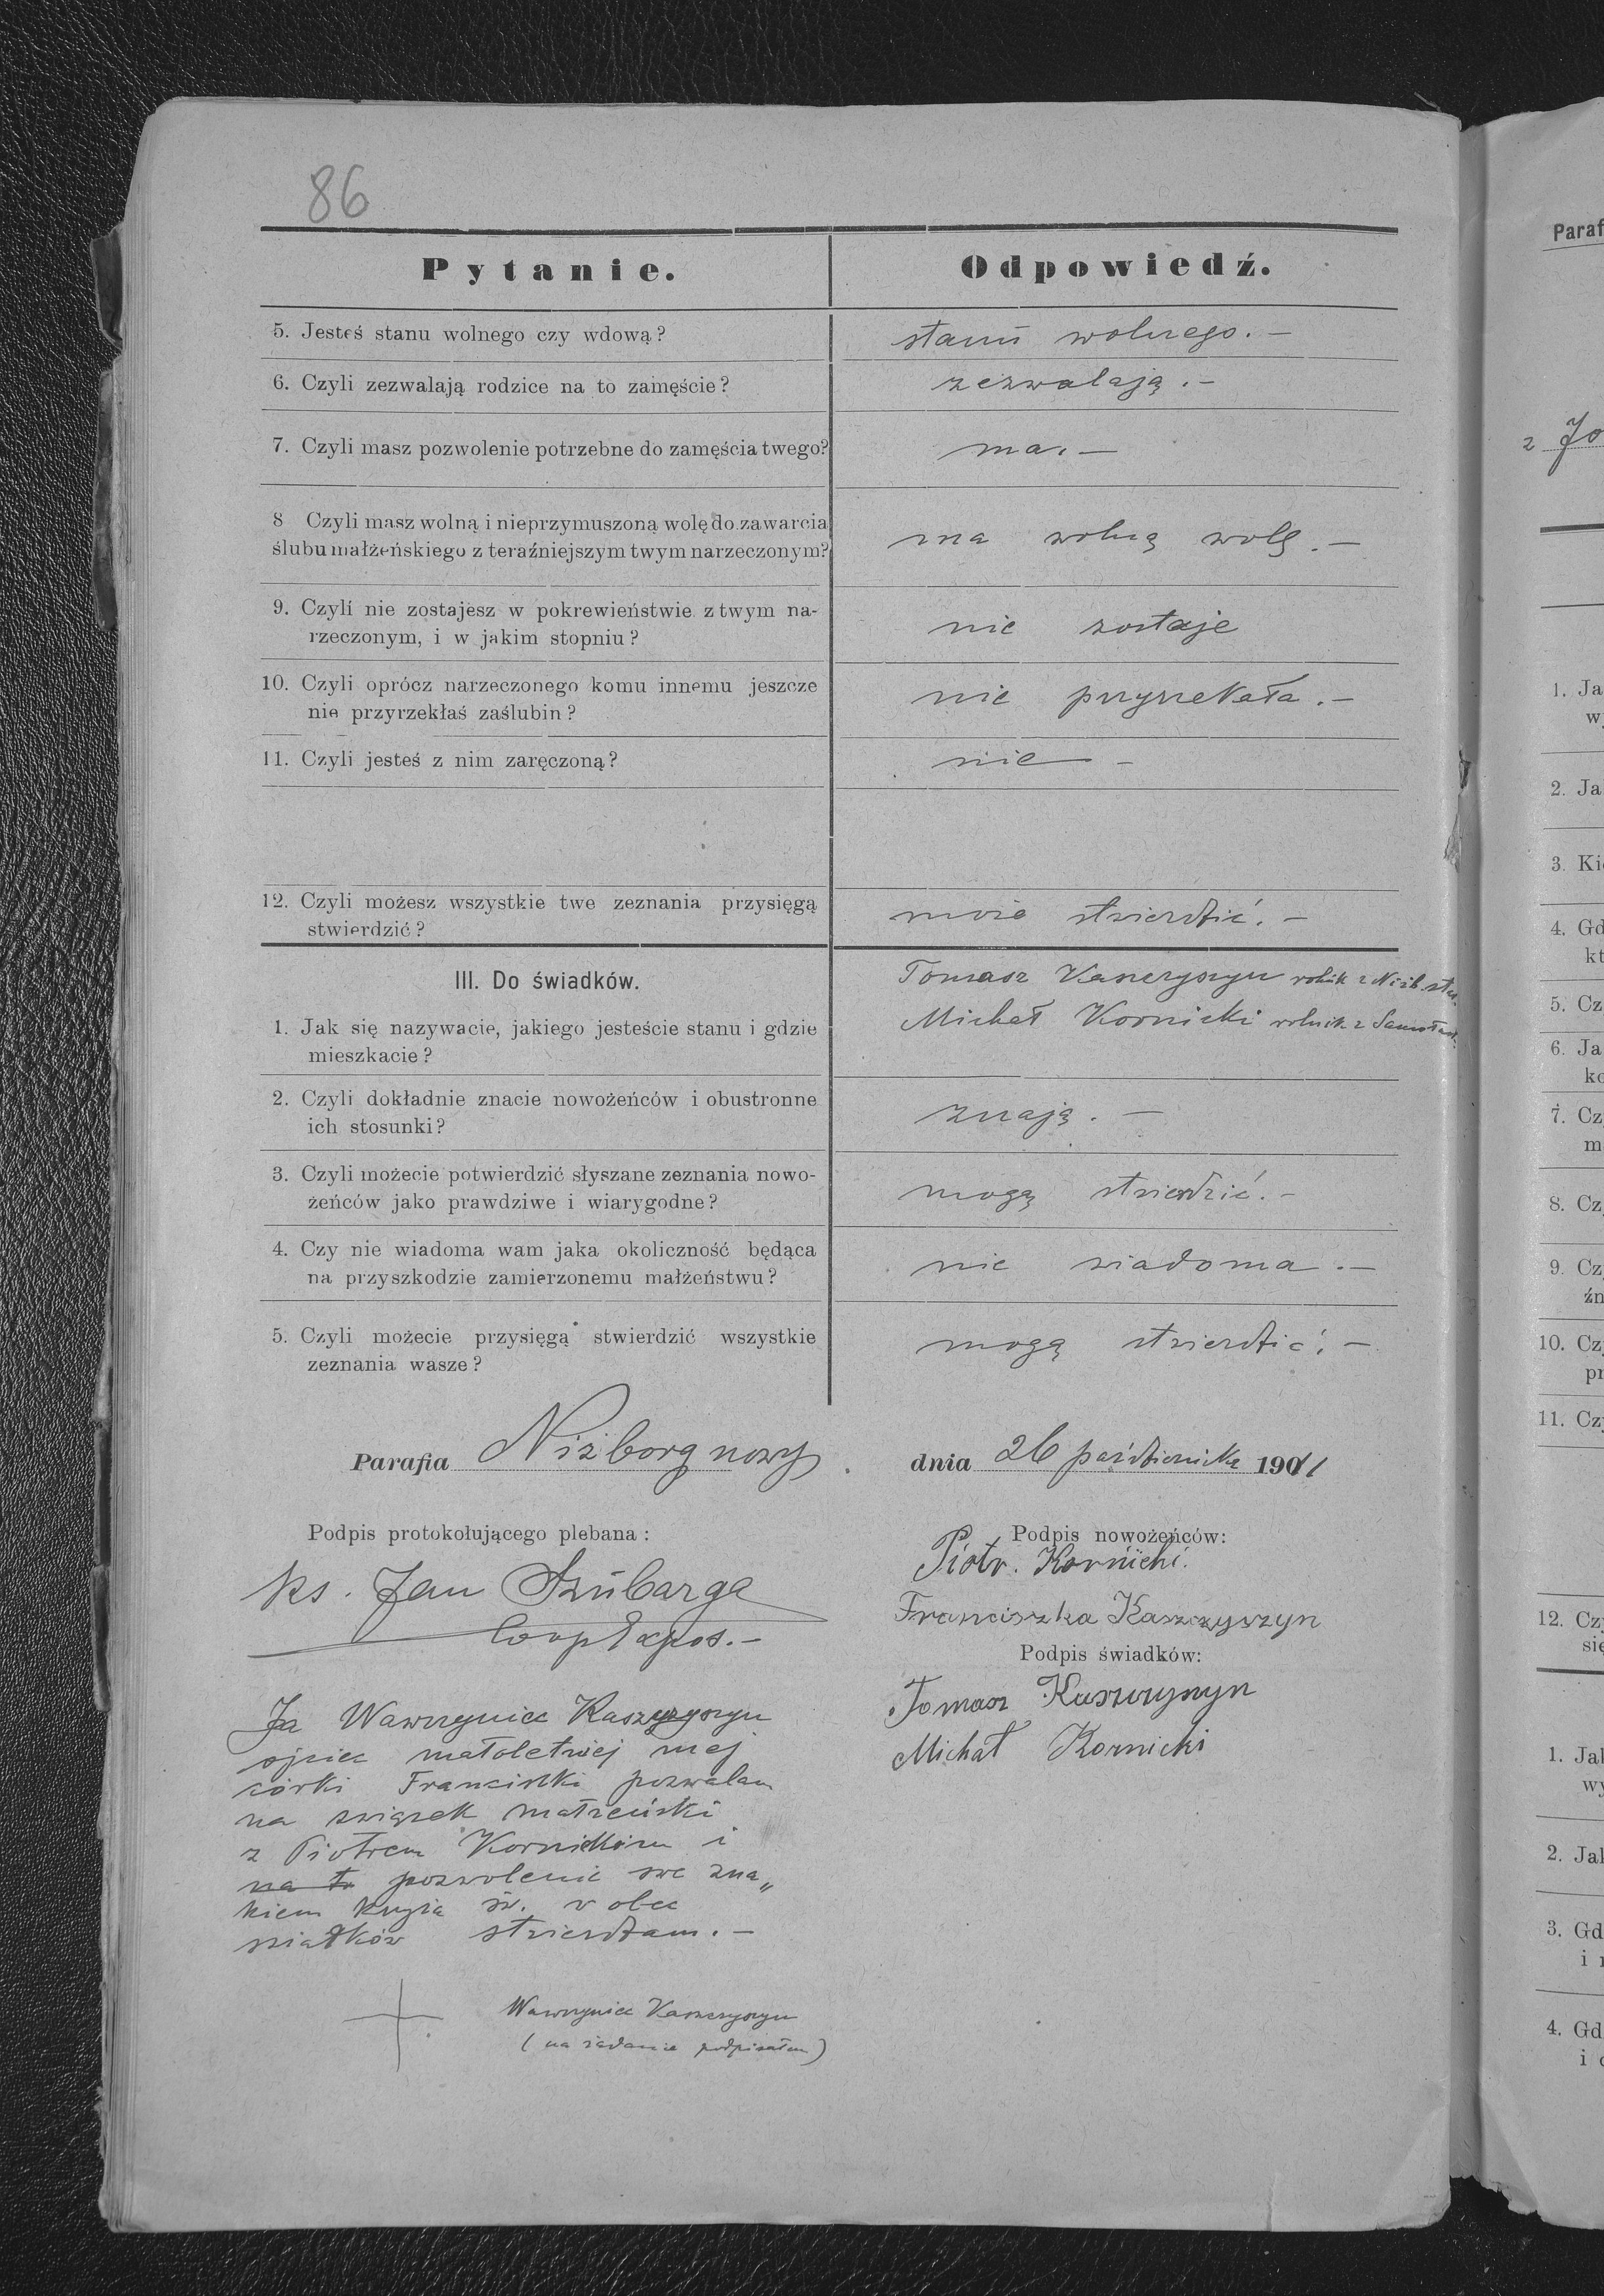 86
Pytanie. Odpowiedź.
5. Jesteś stanu wolnego czy wdową? stanu wolnego. —
6. Czyli zezwalają rodzice na to zamęście? zezwalają. —
7. Czyli masz pozwolenie potrzebne do zamęścia twego? ma. —
8 Czyli masz wolną i nieprzymuszoną wolę do zawarcia
ślubu małżeńskiego z teraźniejszym twym narzeczonym? ma wolną wolę. —
9. Czyli nie zostajesz w pokrewieństwie z twym na-
rzeczonym, i w jakim stopniu? nie zostaje
10. Czyli oprócz narzeczonego komu innemu jeszcze
nie przyrzekłaś zaślubin? nie przyrzekała. —
11. Czyli jesteś z nim zaręczoną? nie —
12. Czyli możesz wszystkie twe zeznania przysięgą
stwierdzić? może stwierdzić. —
III. Do świadków.
1. Jak się nazywacie, jakiego jesteście stanu i gdzie
mieszkacie?
Tomasz Kaszczyszyn rolnik z Niżb. star.
Michał Kornicki rolnik z
2. Czyli dokładnie znacie nowożeńców i obustronne
ich stosunki? znają. —
3. Czyli możecie potwierdzić słyszane zeznania nowo-
żeńców jako prawdziwe i wiarygodne? mogą stwierdzić. —
4. Czy nie wiadoma wam jaka okoliczność będąca
na przyszkodzie zamierzonemu małżeństwu? nie wiadoma. —
5. Czyli możecie przysięgą stwierdzić wszystkie
zeznania wasze? mogą stwierdzić. —
Parafia Niżborg nowy. dnia 26 października 1911
Podpis protokołującego plebana:
ks. Jan Szubarga
Coop Expos. —
Podpis nowożeńców:
Piotr. Kornicki.
Franciszka Kaszczyszyn
Podpis świadków:
Tomasz Kaszczyszyn
Michał Kornicki
Ja Wawrzyniec Kaszczyszyn
ojciec małoletniej mej
córki Franciszki pozwalam
na związek małżeński
z Piotrem Kornickim i
na to pozwolenie swe zna„
kiem krzyża św. w obec
świadków stwierdzam. —
Wawrzyniec Kaszczyszyn
(na żądanie podpisałem)
Paraf
z Jo
1. Ja
wy
2. Ja
3. Ki
4. Gd
kt
5. Cz
6. Ja
ko
7. Cz
m
8. Cz
9. Cz
źn
10. Cz
pr
11. Cz
12. Cz
się
1. Jal
wy
2. Jal
3. Gd
i
4. Gd
i